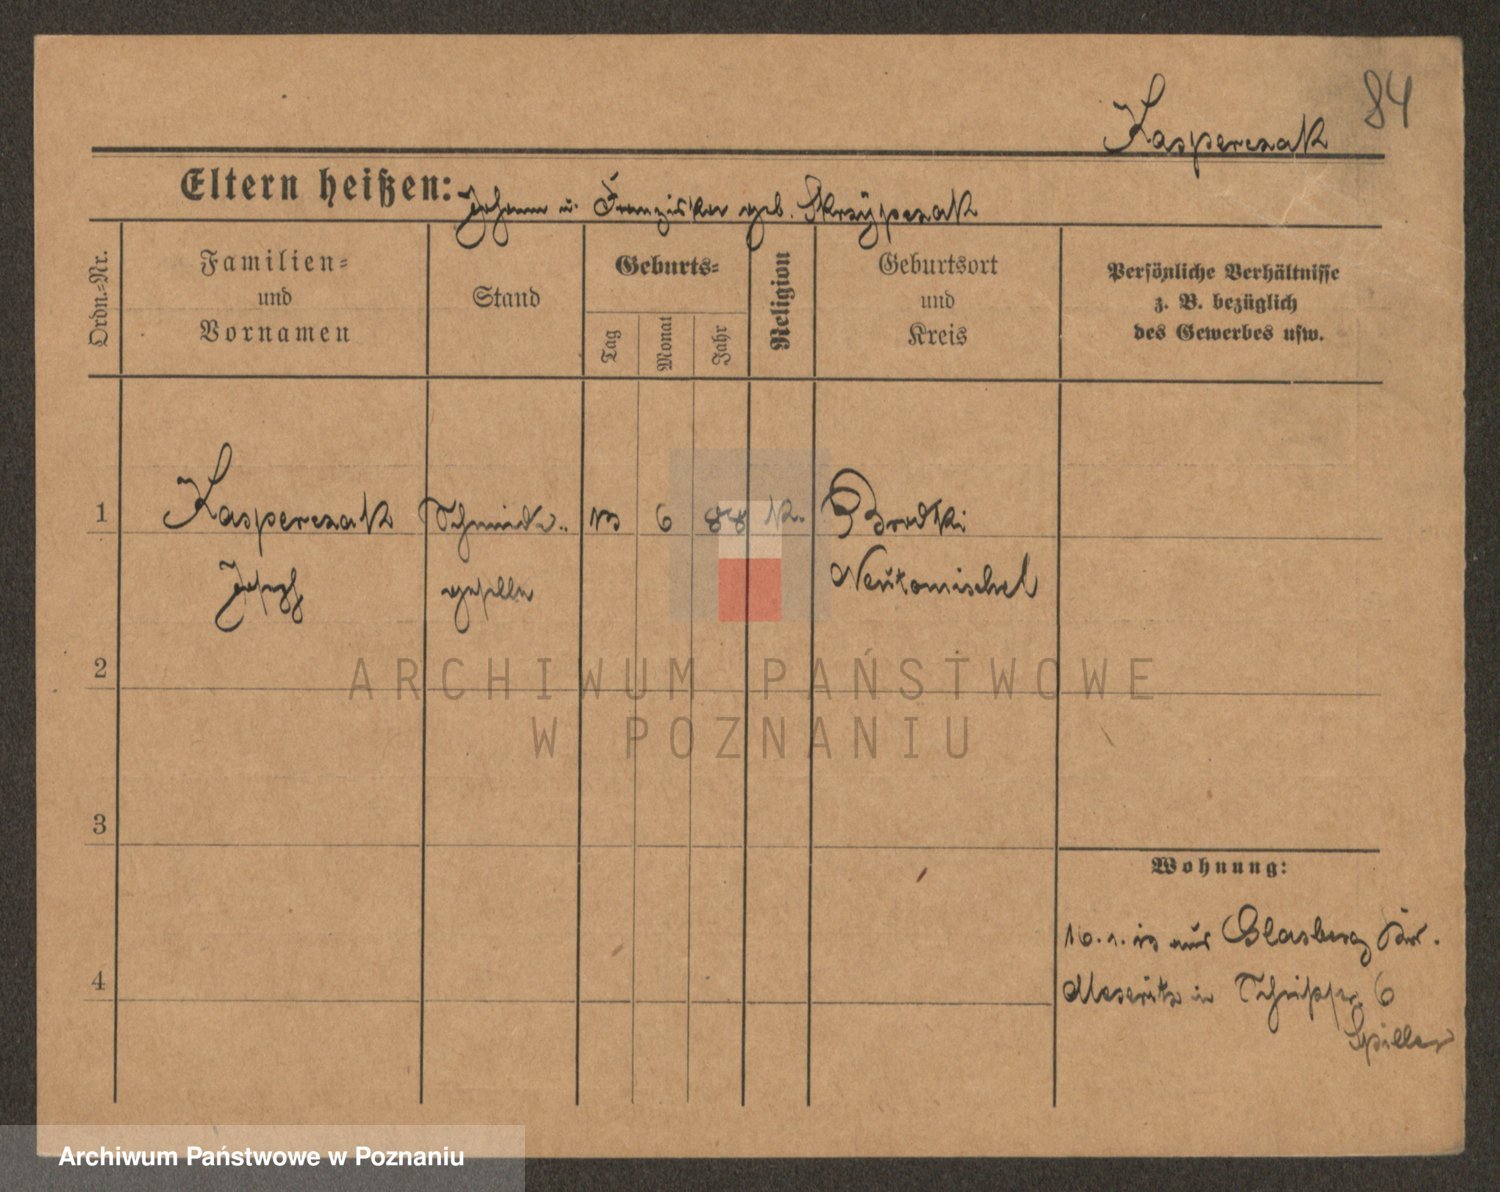 84
Kasperczak
Eltern heißen: Johann u. Franziska geb. Skrzÿpczak
Ordn.=Nr.
Familien=
und
Vornamen
Stand
Geburts=
Tag
Monat
Jahr
Religion
Geburtsort
und
Kreis
Persönliche Verhältnisse
z. B. bezüglich
des Gewerbes usw.
1 Kasperczak Schmiede= 13 6 88 K. Brodki
Joseph geselle Neutomischel
2
ARCHIWUM PAŃSTWOWE
W POZNANIU
3
Wohnung:
16. 1. aus Glasberg Kr.
4
Meseritz in 6
Spiller
Archiwum Państwowe w Poznaniu